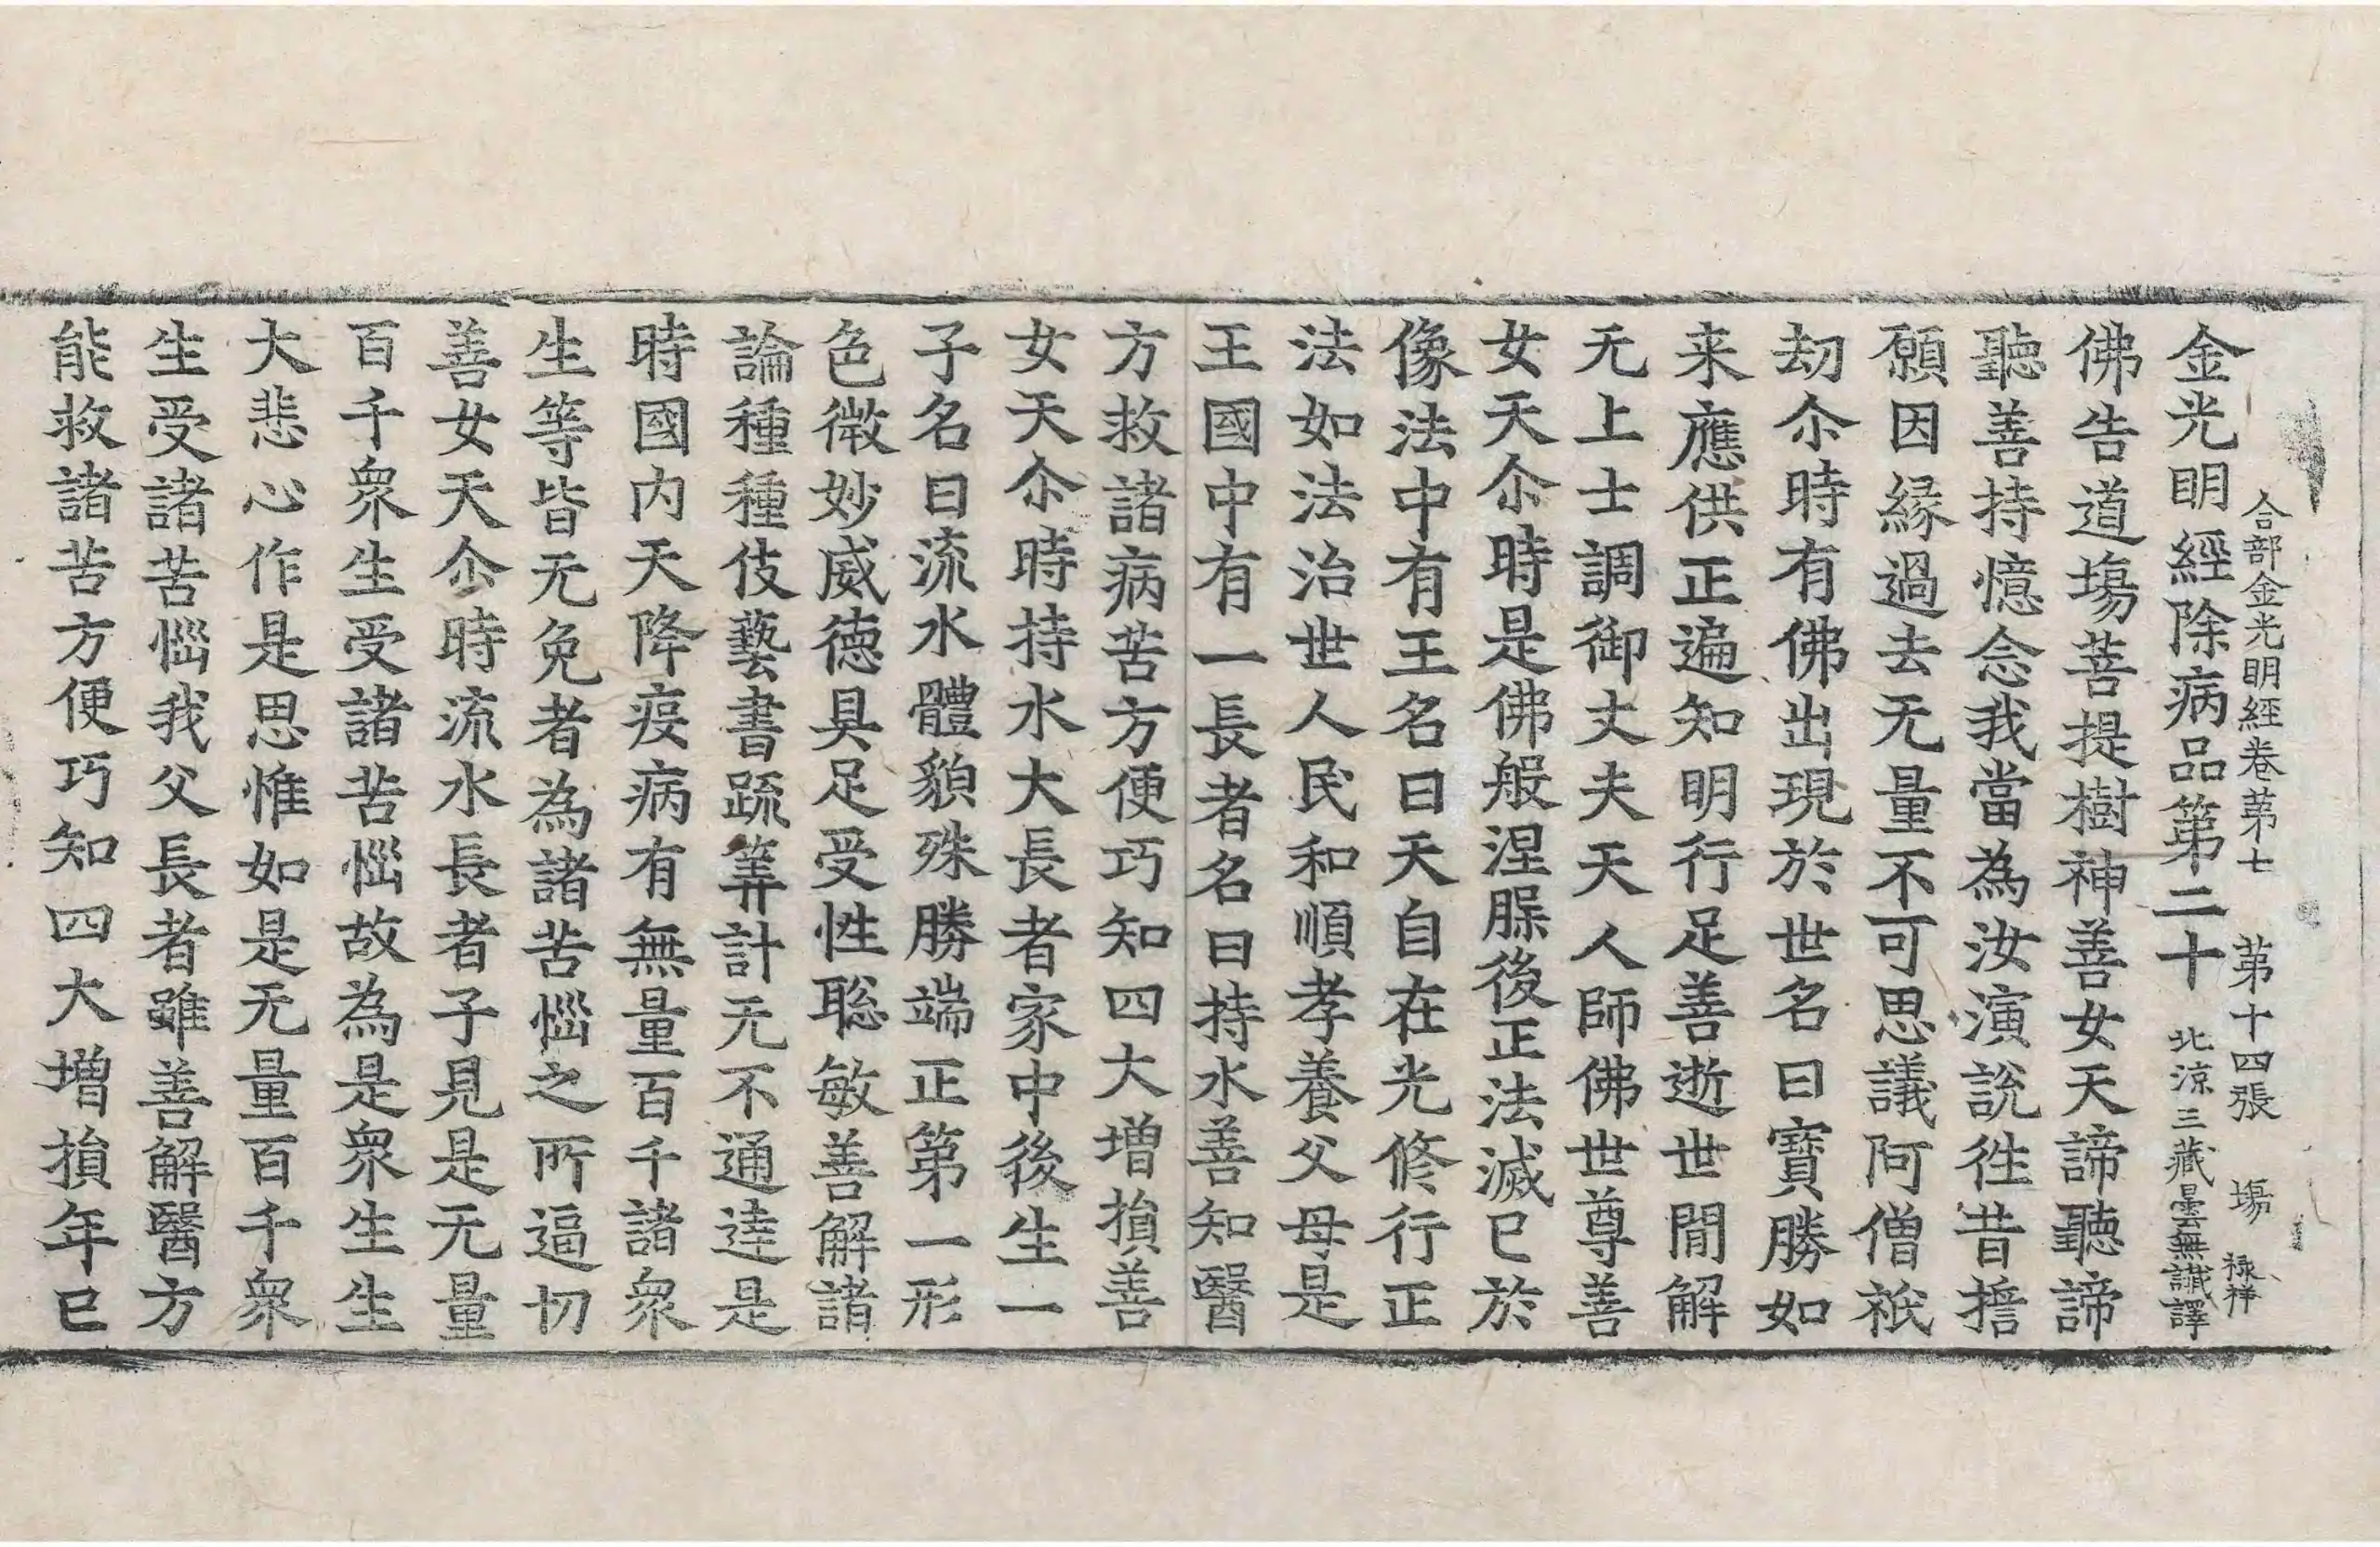 合部金光明經卷第七 第十四張 塲 祿祥
金光明經除病品第二十 北涼三藏曇無讖譯
佛告道塲菩提樹神善女天諦聽諦
聽善持憶念我當為汝演說徃昔擔
願因緣過去无量不可思議阿僧祇
劫尒時有佛出現於世名曰寶勝如
来應供正遍知明行足善逝世間解
无上士調御丈夫天人師佛世尊善
女天尒時是佛般涅脲後正法滅已於
像法中有王名曰天自在光修行正
法如法治世人民和順孝養父母是
王國中有一長者名曰持水善知醫
方救諸病苦方便巧知四大增損善
女天尒時持水大長者家中後生一
子名曰流水體貌殊勝端正第一形
色微妙威德具足受性聡敏善解諸
論種種伎藝書疏筭計无不通達是
時國內天降疫病有無量百千諸衆
生等皆无免者為諸苦惱之所逼切
善女天尒時流水長者子見是无量
百千衆生受諸苦惱故為是衆生生
大悲心作是思惟如是无量百千衆
生受諸苦惱我父長者雖善解醫方
能救諸苦方便巧知四大增損年已